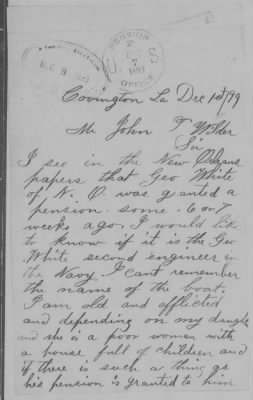 U.S.
PENSION
DEC
7
1899
OFFICE
Covington La Dec 1st/99
Mr John T Wilder
Sir
I see in the New Orleans
papers that Geo White
of N. O. was granted a
pension some 6 or 7
weeks ago. I would like
to know if it is the Geo
White second engineer in
the Navy. I cant remember
the name of the boat.
I am old and afflicted
and depending on my daught
and she is a poor woman with
a house full of children and
if there is such a thing as
his pension is granted to him